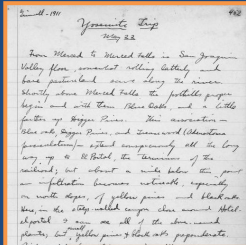 1911
453
Yosemite Trip
May 22
From Merced to Merced Falls is San Joaquin
Valley floor, somewhat rolling latterly and
bare particularly save along the river.
Shortly above Merced Falls the foothills proper
begin and with them Blue Oaks, and a little
farther up Digger Pines. This association—
Blue oak, Digger Pines, and
extend conspicuously all the long
way up to El Portal, the terminus of the
railroad, but about a mile below this point
an infiltration becomes noticeable, especially
on north slopes, of yellow pines and black oaks
Here in the steep-walled canyon close around Hotel
elportal I saw all the
plants, but yellow pines & black oaks preponderate.